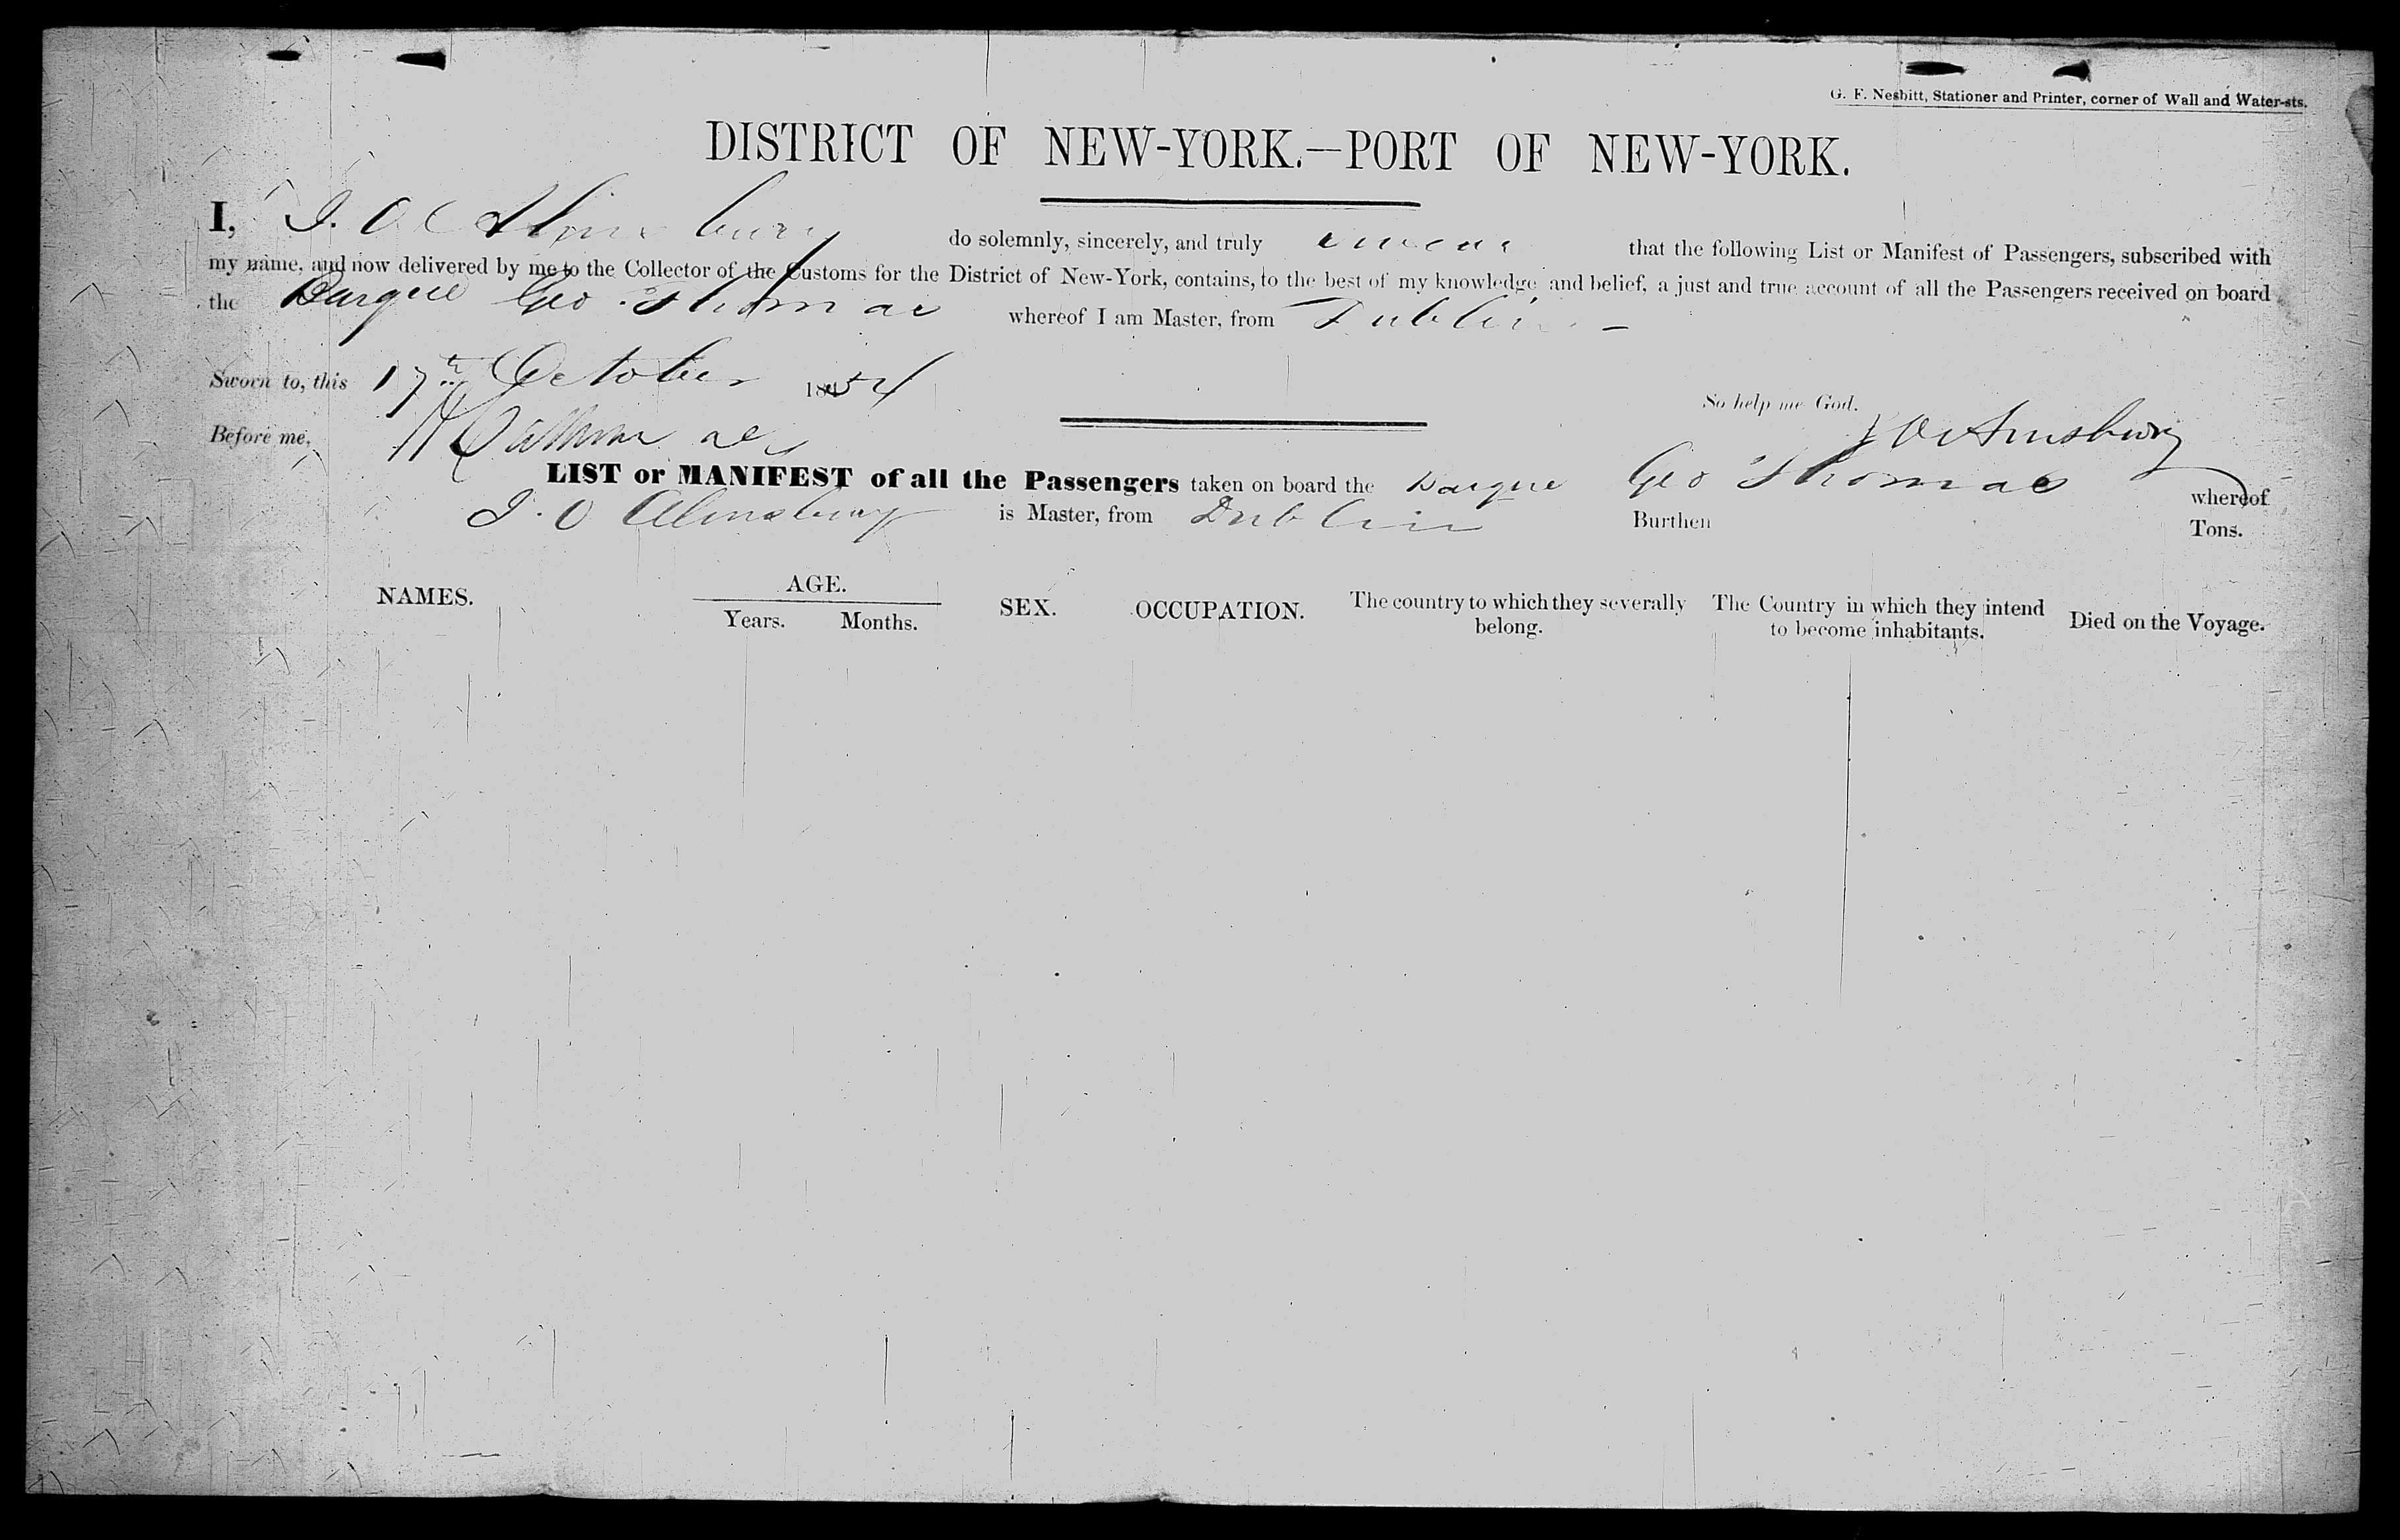 G. F. Nesbitt, Stationer and Printer, corner of Wall and Water-sts.
DISTRICT OF NEW-YORK.—PORT OF NEW-YORK.
I, J. O do solemnly, sincerely, and truly swear that the following List or Manifest of Passengers, subscribed with
my name, and now delivered by me to the Collector of the Customs for the District of New-York, contains, to the best of my knowledge and belief, a just and true account of all the Passengers received on board
the Barque Geo Thomas whereof I am Master, from Dublin —
Sworn to, this 17th October 1854
So help me God.
Before me,
J O Amsbury
LIST or MANIFEST of all the Passengers taken on board the Barque Geo Thomas whereof
J. O Amsbury is Master, from Dublin Burthen Tons.
NAMES. AGE. SEX. OCCUPATION. The country to which they severally belong. The Country in which they intend to become inhabitants. Died on the Voyage.
Years. Months.